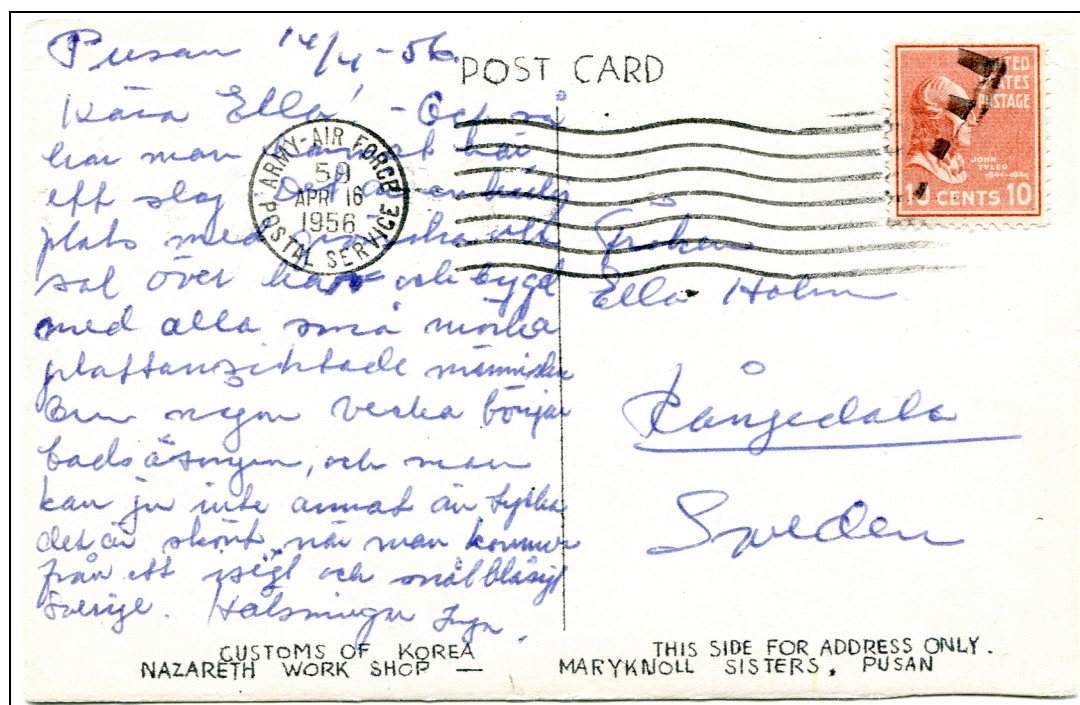 Pusan 14/4-56.
POST CARD
Kära Ella! - Och så
har man kommit hit
ett slag. Det är en härlig
plats med grönska och
sol över hav och bygd
med alla små mörka
plattansiktade människor
Om någon vecka börjar
badsäsongen, och man
kan ju inte annat än tycka
det är skönt, när man kommer
från ett isigt och snålblåsigt
Sverige. Hälsningar Inga.
ARMY-AIR FORCE
59
APR 16
1956
POSTAL SERVICE
UNITED
STATES
POSTAGE
JOHN
TYLER
10 CENTS 10
Fröken
Ella Holm
Rångedala
Sweden
CUSTOMS OF KOREA
NAZARETH WORK SHOP —
THIS SIDE FOR ADDRESS ONLY.
MARYKNOLL SISTERS, PUSAN